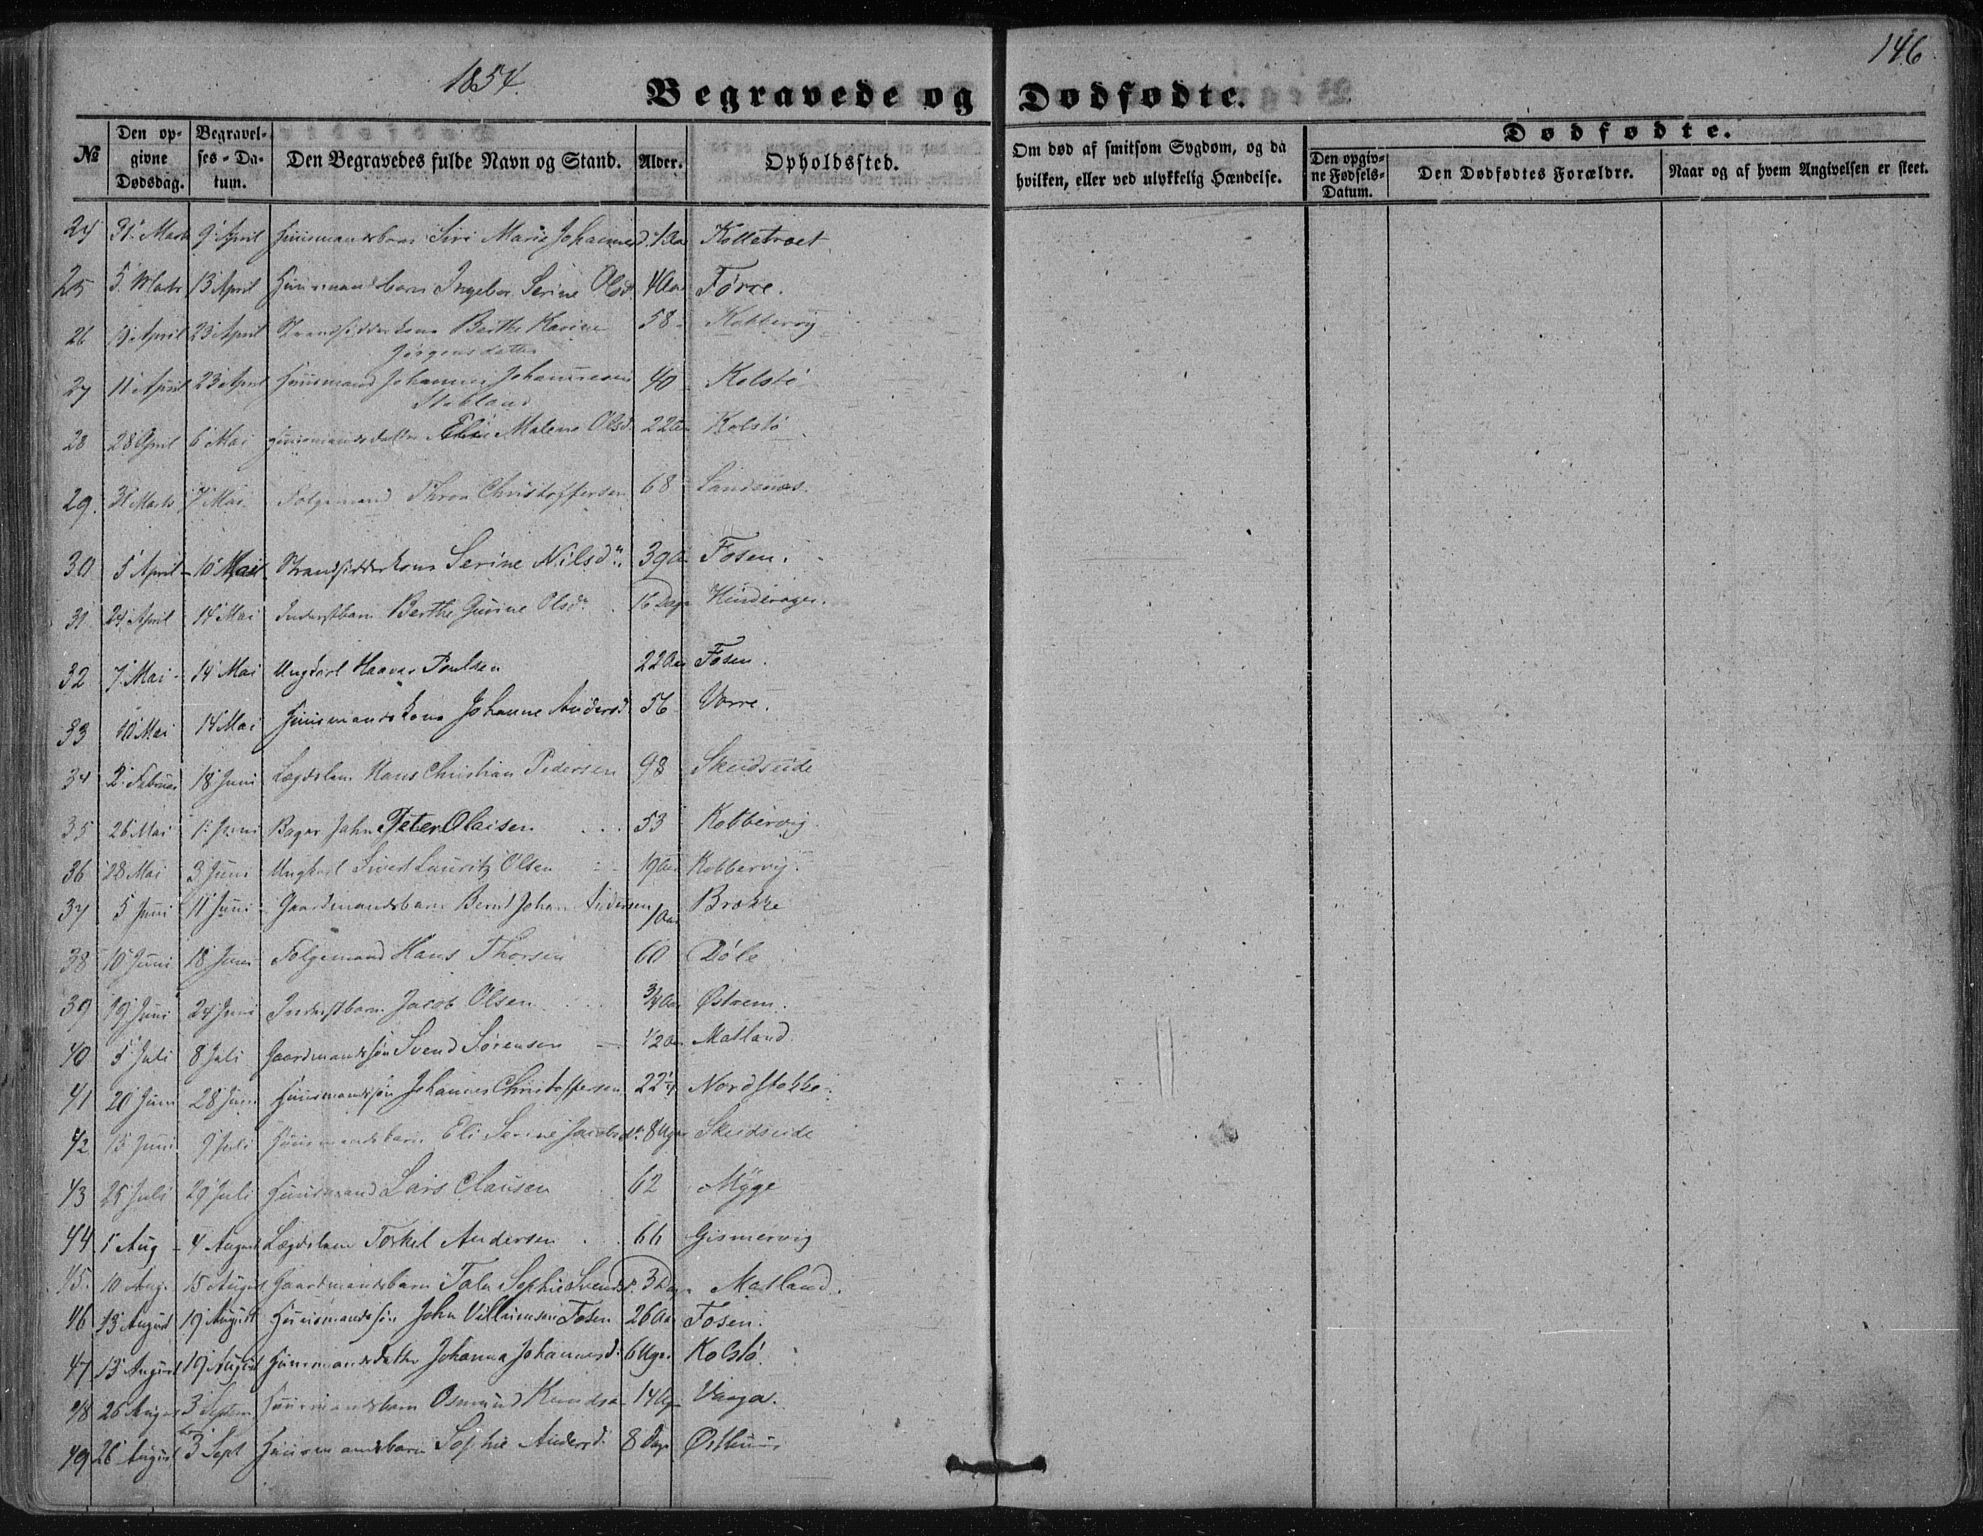 146
1854.
Begravede og Dødfødte.
№
Den opgivne Dødsdag.
Begravelses-Datum.
Den Begravedes fulde Navn og Stand.
Alder.
Opholdssted.
Om død af smitsom Sygdom, og da hvilken, eller ved ulykkelig Hændelse.
Dødfødte.
Den opgivne Fødsels-Datum.
Den Dødfødtes Forældre.
Naar og af hvem Angivelsen er steet.
24 31 Marts 9 April Huusmandsbarn Siri Marie Johannesd. Kolletvet
25 5 Marts 13 April Huusmandsbarn Ingebor Serine Olsd. 4 Aar Førre.
26 9 April 23 April Strandsidderkone Berthe Karine 58 Kobbervig
Jørgensdatter
27 11 April 23 April Huusmand Johannes Johannesen 40 Kolstø
Stakland
28 28 April 6 Mai Huusmandsdatter Elie Malene Olsd. 22 Aar Kolstø
29. 31 Marts 7 Mai Følgemand Christoffersen 68 Sandsnæs.
30 5 April 10 Mai Strandsidderkone Serine Nilsdr. 39 Aar Fosen.
31 24 April 14 Mai Inderstbarn Berthe Gurine Olsdr. 16 Dage Hinderager.
32 7 Mai 14 Mai Ungkarl Haaver Poulsen 22 Aar Fosen.
33 10 Mai 14 Mai Huusmandskone Johanne Andersd. 56 Vorre.
34 2 Februar 18 Juni Lægdslem Hans Christian Pedersen 98 Skeidseide
35 26 Mai 1 Juni Bager Jahn Peter Olaisen 53 Kobbervig
36 28 Mai 3 Juni Ungkarl Sivert Lauritz Olsen 19 Aar Kobbervig.
37 5 Juni 11 Juni Gaardmandsbarn Bernt Johan Andersen 1 Aar Brække
38 10 Juni 18 Juni Følgemand Hans Thorsen 60 Døle
39 19 Juni 24 Juni Inderstbarn Jacob Olsen 3/4 Aar Østrem.
40 5 Juli 8 Juli Gaardmandssøn Svend Sørensen 1/2 Aar Matland.
41 20 Juni 28 Juni Huusmandssøn Johannes Christoffersen 22 1/4 Nordstokke
42 15 Juni 9 Juli Huusmandsbarn Eli Serine Jacobsdr. 8 Uger Skeidseide
43 25 Juli 29 Juli Huusmand Lars Clausen 62 Myge
44 1 Aug 4 August Lægdslem Torkel Andersen 66 Gismervig
45. 10 Aug. 15 August Gaardmandsbarn Tale Sophie Svendsdr. 3 Dage Matland.
46 13 August 19 August Huusmandssøn John Villumsen Fosen 26 Aar Fosen.
47 13 August 19 August Huusmandsdatter Johanna Johannesd. 6 Uger Kolstø.
48 25 August 3 September Huusmandsbarn Osmund Knudsen 14 Vaaga.
49 26 August 3 Sept Huusmandsbarn Sophie Andersd. 8 Dage Østhuus